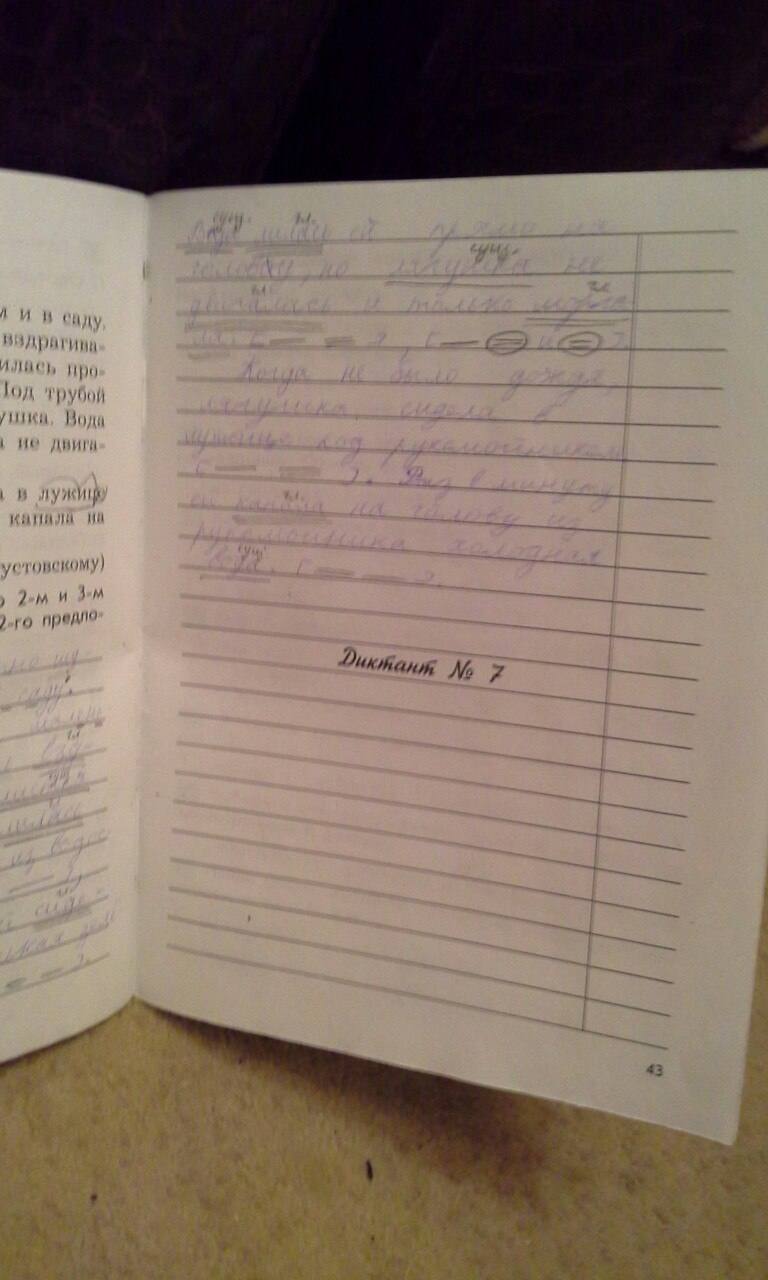 м и в саду.
вздрагива-
илась про-
Под трубой
ушка. Вода
а не двига-
а в лужице
капала на
устовскому)
о 2-м и 3-м
2-го предло-
саду.
сущ. гл.
Вода лилась ей прямо на
сущ.
голову, но лягушка не
гл. гл.
двигалась и только морга-
ла. [ ], [ и ].
Когда не было дождя,
лягушка сидела в
лужице под рукомойником
[ ]. Раз в минуту
гл.
ей капала на голову из
рукомойника холодная
сущ.
вода. [ ].
Диктант № 7
43